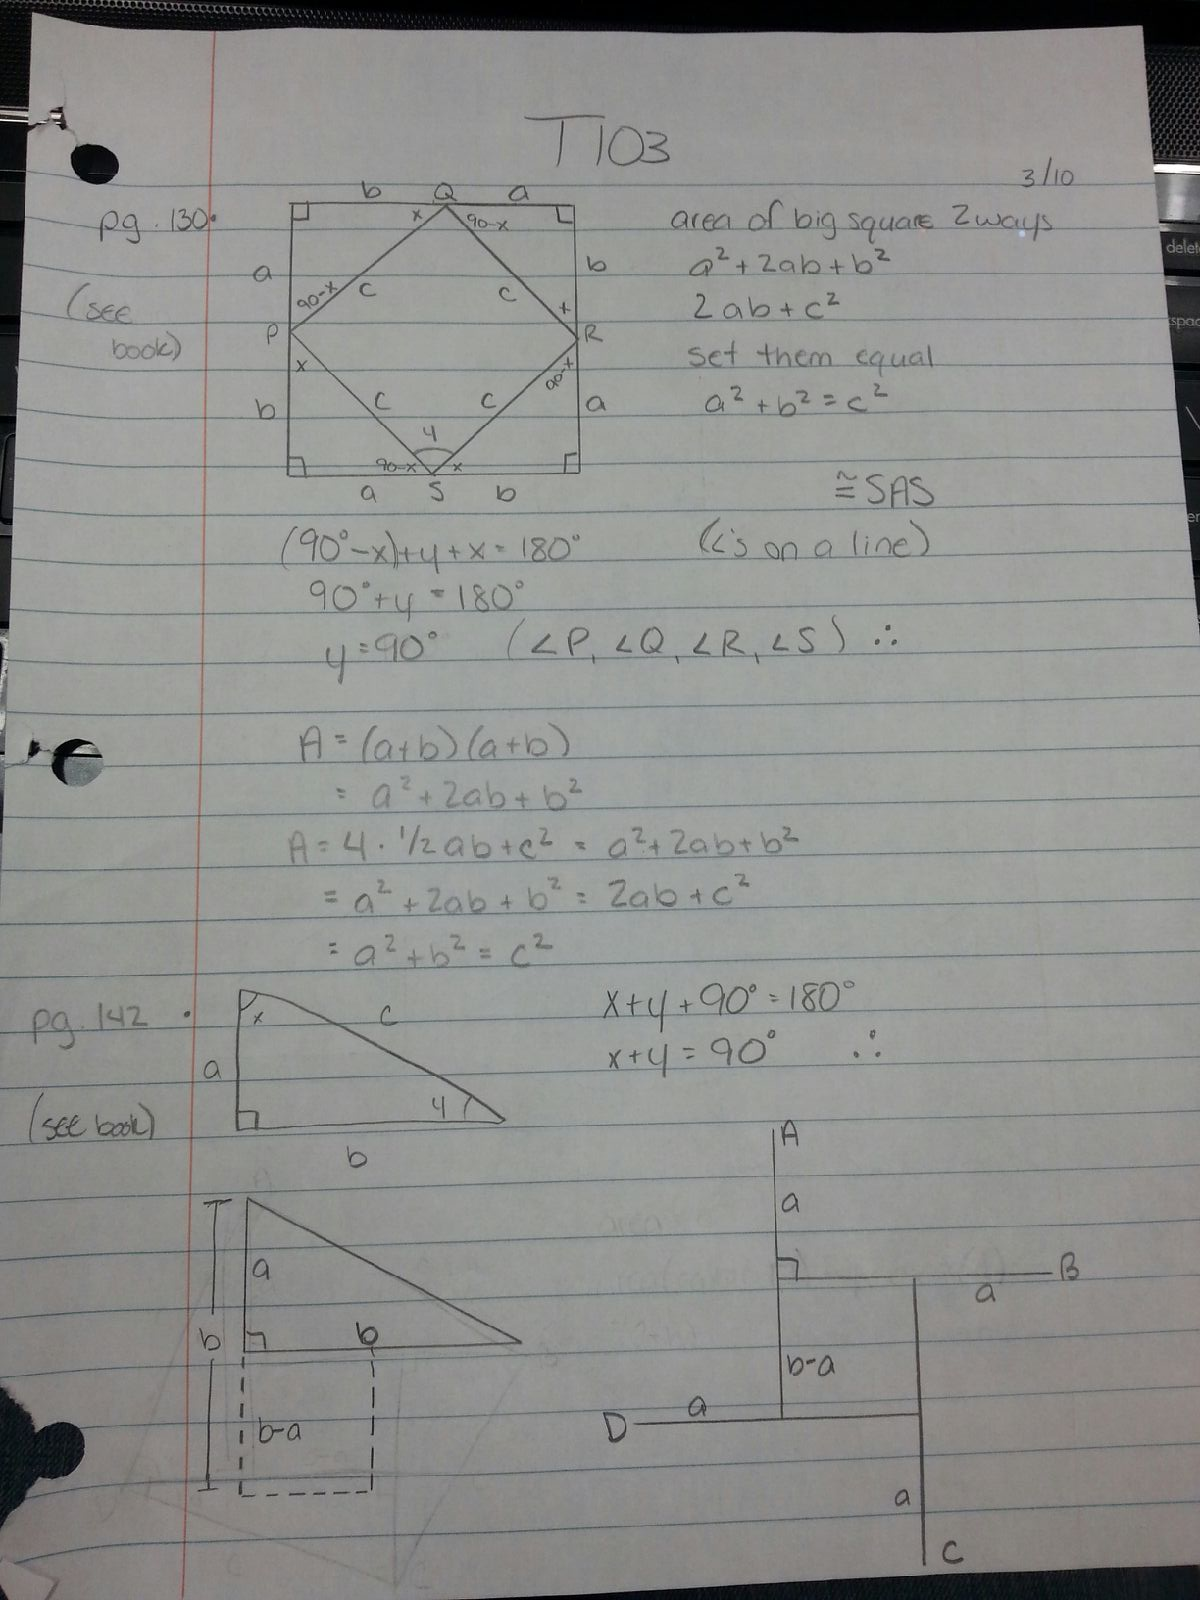 T103
3/10
pg. 130.
(see
book)
b Q a
x 90-x
a b
90-x c c x
P R
x 90-x
b c c a
y
90-x x
a S b
area of big square 2ways
a²+2ab+b²
2ab+c²
set them equal
a²+b²=c²
≅SAS
(90°-x)+y+x=180° (∠'s on a line)
90°+y=180°
y=90° (∠P, ∠Q, ∠R, ∠S) ∴
A=(a+b)(a+b)
= a²+2ab+b²
A=4·1/2ab+c² = a²+2ab+b²
= a²+2ab+b² = 2ab+c²
= a²+b²=c²
pg. 142 ·
(see book)
x c
a y
b
x+y+90°=180°
x+y=90° ∴
a
b b
b-a
A
a
B
a
b-a
D a
a
C
delet